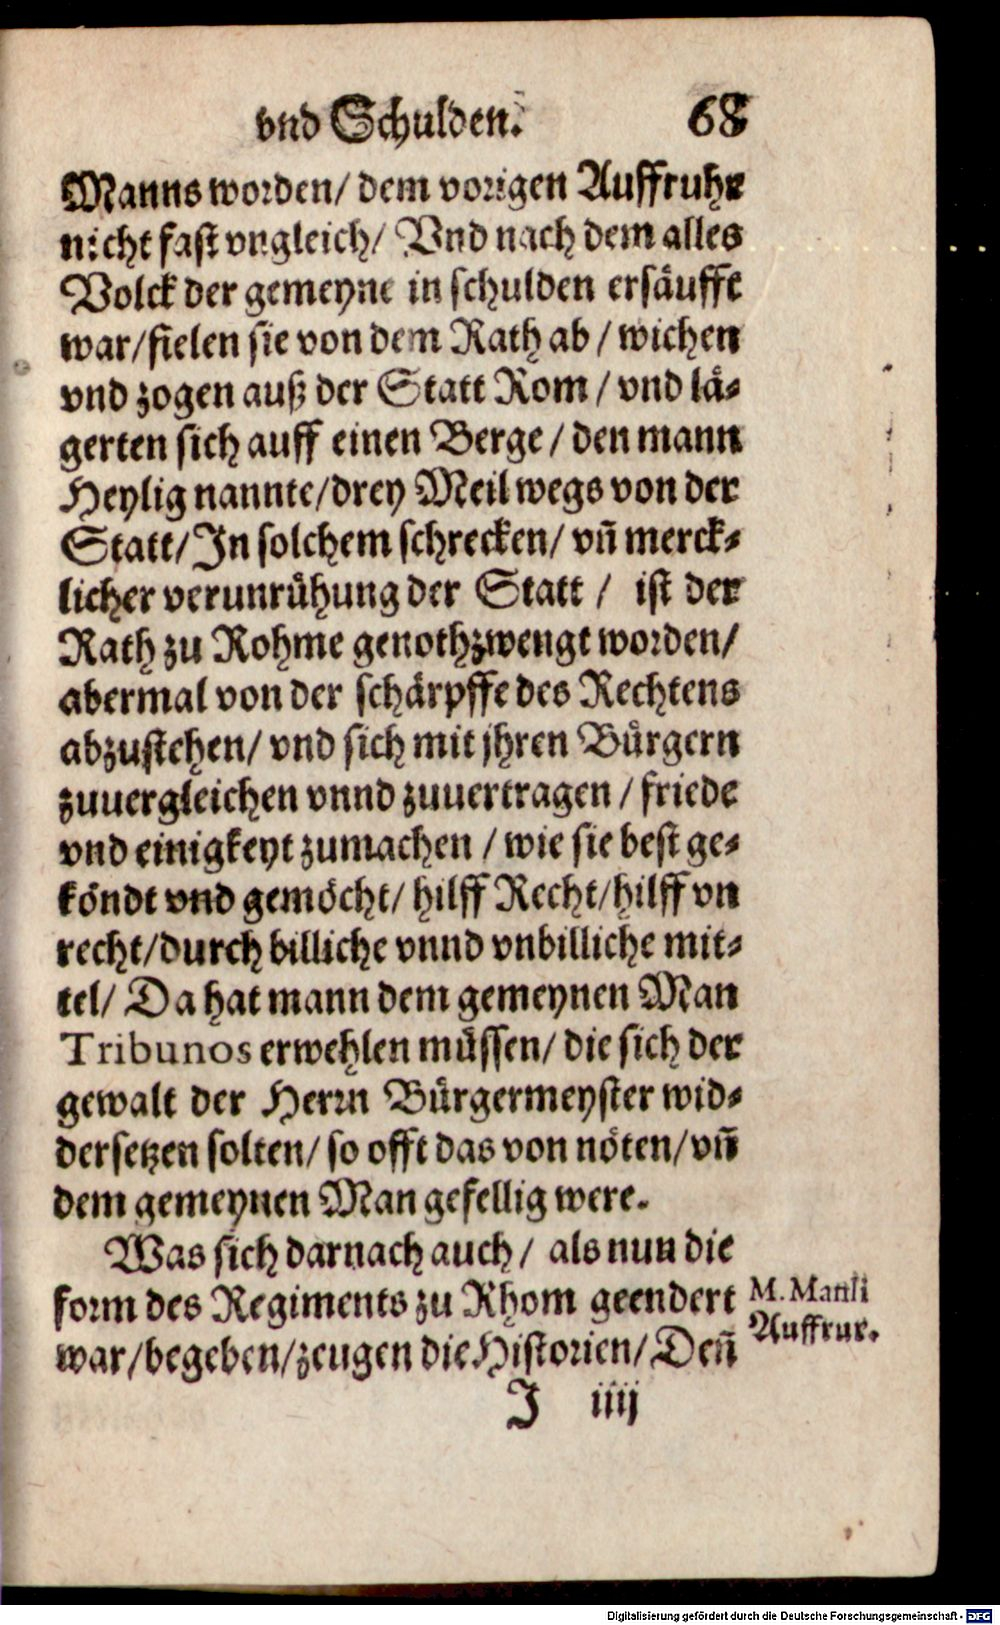 vnd Schulden. 68
Manns worden/ dem vorigen Auffruhr
nicht fast vngleich/ Vnd nach dem alles
Volck der gemeyne in schulden ersäufft
war/fielen sie von dem Rath ab / wichen
vnd zogen auß der Statt Rom / vnd lä-
gerten sich auff einen Berge / den mann
Heylig nannte/drey Meil wegs von der
Statt/ In solchem schrecken/ vn̄ merck-
licher verunrühung der Statt / ist der
Rath zu Rohme genothzwengt worden/
abermal von der schärpffe des Rechtens
abzustehen/ vnd sich mit jhren Bürgern
zuuergleichen vnnd zuuertragen / friede
vnd einigkeyt zumachen / wie sie best ge-
köndt vnd gemöcht/ hilff Recht/hilff vn
recht/durch billiche vnnd vnbilliche mit-
tel/ Da hat mann dem gemeynen Man
Tribunos erwehlen müssen/ die sich der
gewalt der Herrn Bürgermeyster wid-
dersetzen solten/ so offt das von nöten/ vn̄
dem gemeynen Man gefellig were.
Was sich darnach auch / als nun die
form des Regiments zu Rhom geendert
war/begeben/zeugen die Historien/ Den̄
M. Manli
Auffrur.
J iiij
Digitalisierung gefördert durch die Deutsche Forschungsgemeinschaft - DFG